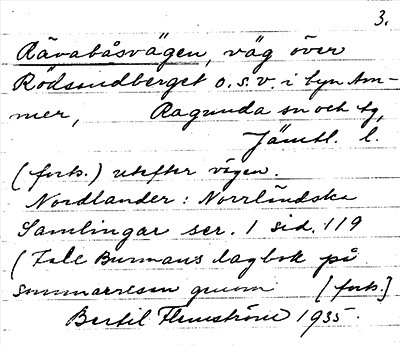 3.
Rävabåsvägen, väg över
Rödsundberget o.s.v. i byn Am-
mer, Ragunda sn och tg,
Jämtl. l.
(forts.) utefter vägen.
Nordlander: Norrländska
Samlingar ser. 1 sid. 119
(Fale Burmans dagbok på
sommarresan genom [forts.]
Bertil Flemström 1935